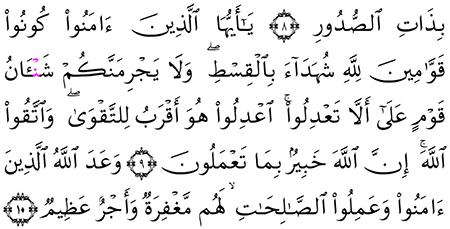 بِذَاتِ ٱلصُّدُورِ ۝٨ يَـٰٓأَيُّهَا ٱلَّذِينَ ءَامَنُوا۟ كُونُوا۟
قَوَّٰمِينَ لِلَّهِ شُهَدَآءَ بِٱلْقِسْطِ ۖ وَلَا يَجْرِمَنَّكُمْ شَنَـَٔانُ
قَوْمٍ عَلَىٰٓ أَلَّا تَعْدِلُوا۟ ۚ ٱعْدِلُوا۟ هُوَ أَقْرَبُ لِلتَّقْوَىٰ ۖ وَٱتَّقُوا۟
ٱللَّهَ ۚ إِنَّ ٱللَّهَ خَبِيرٌۢ بِمَا تَعْمَلُونَ ۝٩ وَعَدَ ٱللَّهُ ٱلَّذِينَ
ءَامَنُوا۟ وَعَمِلُوا۟ ٱلصَّـٰلِحَـٰتِ ۙ لَهُم مَّغْفِرَةٌ وَأَجْرٌ عَظِيمٌ ۝١٠